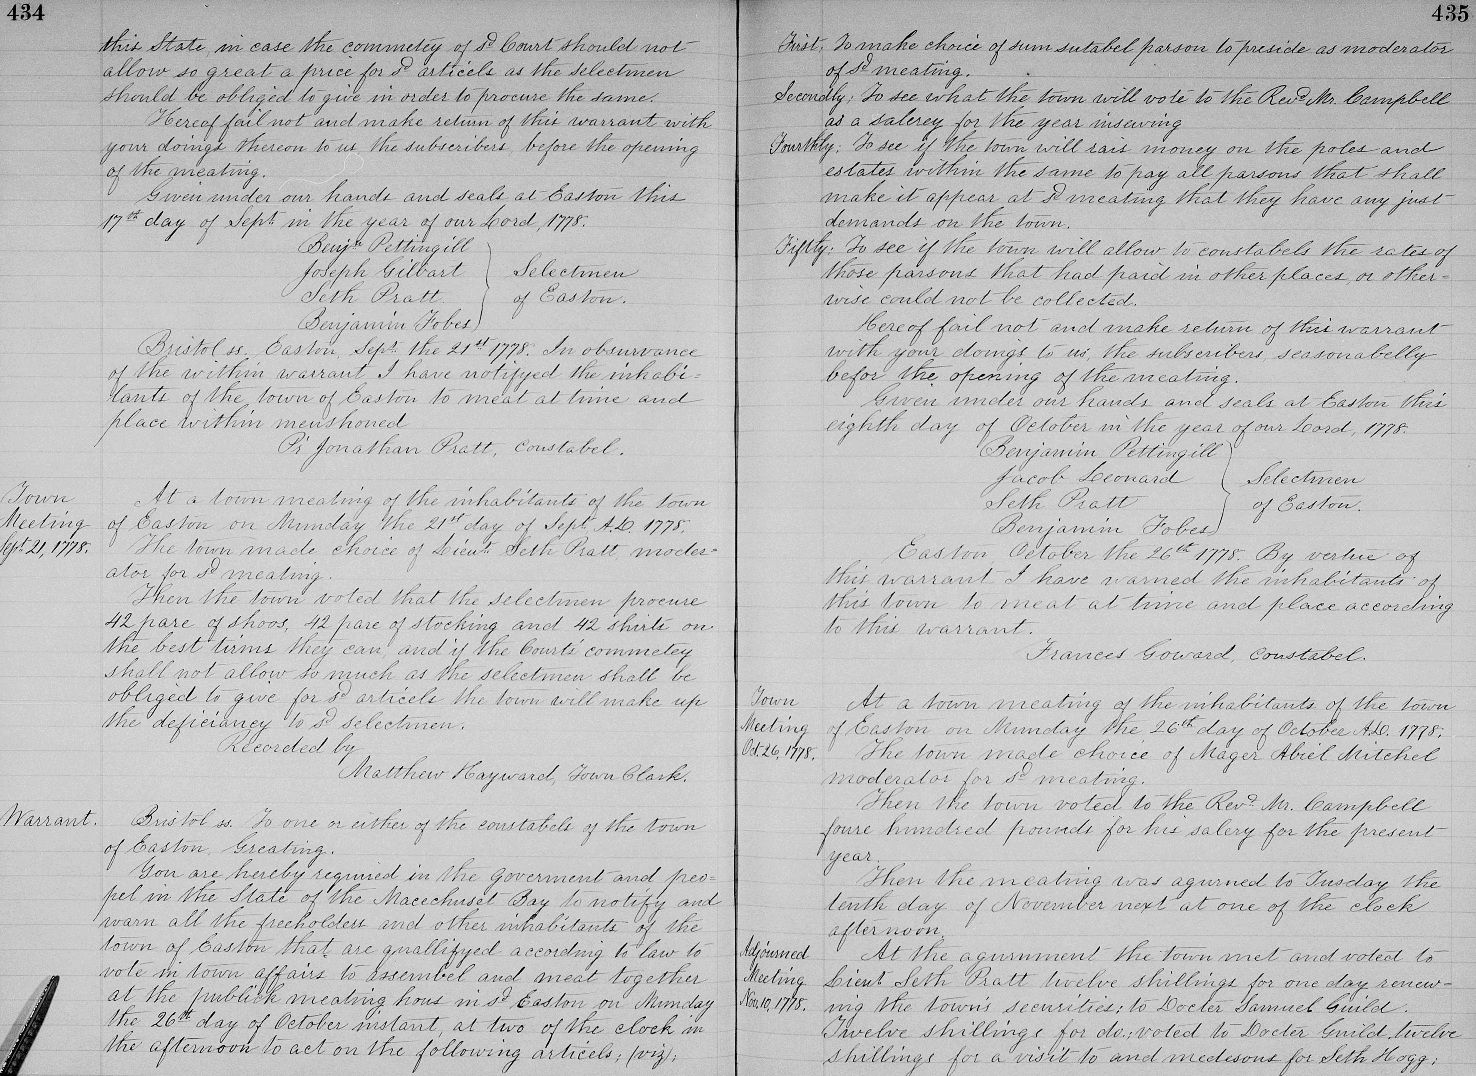 434
this State, in case the commetey of sd Court should not
allow so great a price for sd articels as the selectmen
should be obliged to give in order to procure the same.
Hereof fail not and make return of this warrant with
your doings thereon to us, the subscribers, before the opening
of the meating.
Given under our hands and seals at Easton this
17th day of Sept. in the year of our Lord, 1778.
Benjn Pettingill
Joseph Gilbart
Seth Pratt
Benjamin Fobes
Selectmen
of Easton.
Bristol ss. Easton, Sept. the 21st 1778. In obsurvance
of the within warrant I have notifyed the inhabi=
tants of the town of Easton to meat at time and
place within menshoned
Pr Jonathan Pratt, constabel.
Town
Meeting
Sept. 21, 1778.
At a town meating of the inhabitants of the town
of Easton on Munday the 21st day of Sept. A.D. 1778.
The town made choice of Lieut. Seth Pratt moder=
ator for sd meating.
Then the town voted that the selectmen procure
42 pare of shoos, 42 pare of stocking and 42 shirts on
the best tirms they can, and if the Court's commetey
shall not allow so much as the selectmen shall be
obliged to give for sd articels the town will make up
the deficiancy to sd selectmen.
Recorded by
Matthew Hayward, Town Clark.
Warrant.
Bristol ss. To one or either of the constabels of the town
of Easton, Greating.
You are hereby required in the goverment and peo=
pel in the State of the Macechuset Bay to notify and
warn all the freeholders and other inhabitants of the
town of Easton that are quallifyed according to law to
vote in town affairs to assembel and meat together
at the publick meating hous in sd Easton on Munday
the 26th day of October instant, at two of the clock in
the afternoon to act on the following articels; (viz);
435
First; To make choice of sum sutabel parson to preside as moderator
of sd meating.
Secondly; To see what the town will vote to the Revd. Mr. Campbell
as a salerey for the year insewing
Fourthly; To see if the town will rais money on the poles and
estates within the same to pay all parsons that shall
make it appear at sd meating that they have any just
demands on the town.
Fiftly; To see if the town will allow to constabels the rates of
those parsons that had paid in other places, or other=
wise could not be collected.
Hereof fail not and make return of this warrant
with your doings to us, the subscribers, seasonabelly
befor the opening of the meating.
Given under our hands and seals at Easton this
eighth day of October in the year of our Lord, 1778.
Benjamin Pettingill
Jacob Leonard
Seth Pratt
Benjamin Fobes
Selectmen
of Easton.
Easton, October the 26th 1778. By vertue of
this warrant I have warned the inhabitants of
this town to meat at time and place according
to this warrant.
Frances Goward, constabel.
Town
Meeting
Oct. 26, 1778.
At a town meating of the inhabitants of the town
of Easton on Munday the 26th day of October A.D. 1778;
The town made choice of Mager Abiel Mitchel
moderator for sd meating.
Then the town voted to the Revd. Mr. Campbell
foure hundred pounds for his salery for the present
year.
Then the meating was agurned to Tusday the
tenth day of November next at one of the clock
afternoon.
Adjourned
Meeting
Nov. 10, 1778.
At the agurnment the town met and voted to
Lieut Seth Pratt twelve shillings for one day renew=
ing the town's securities; to Docter Samuel Guild.
Twelve shillings for do.; voted to Docter Guild twelve
shillings for a visit to and medesons for Seth Hogg;